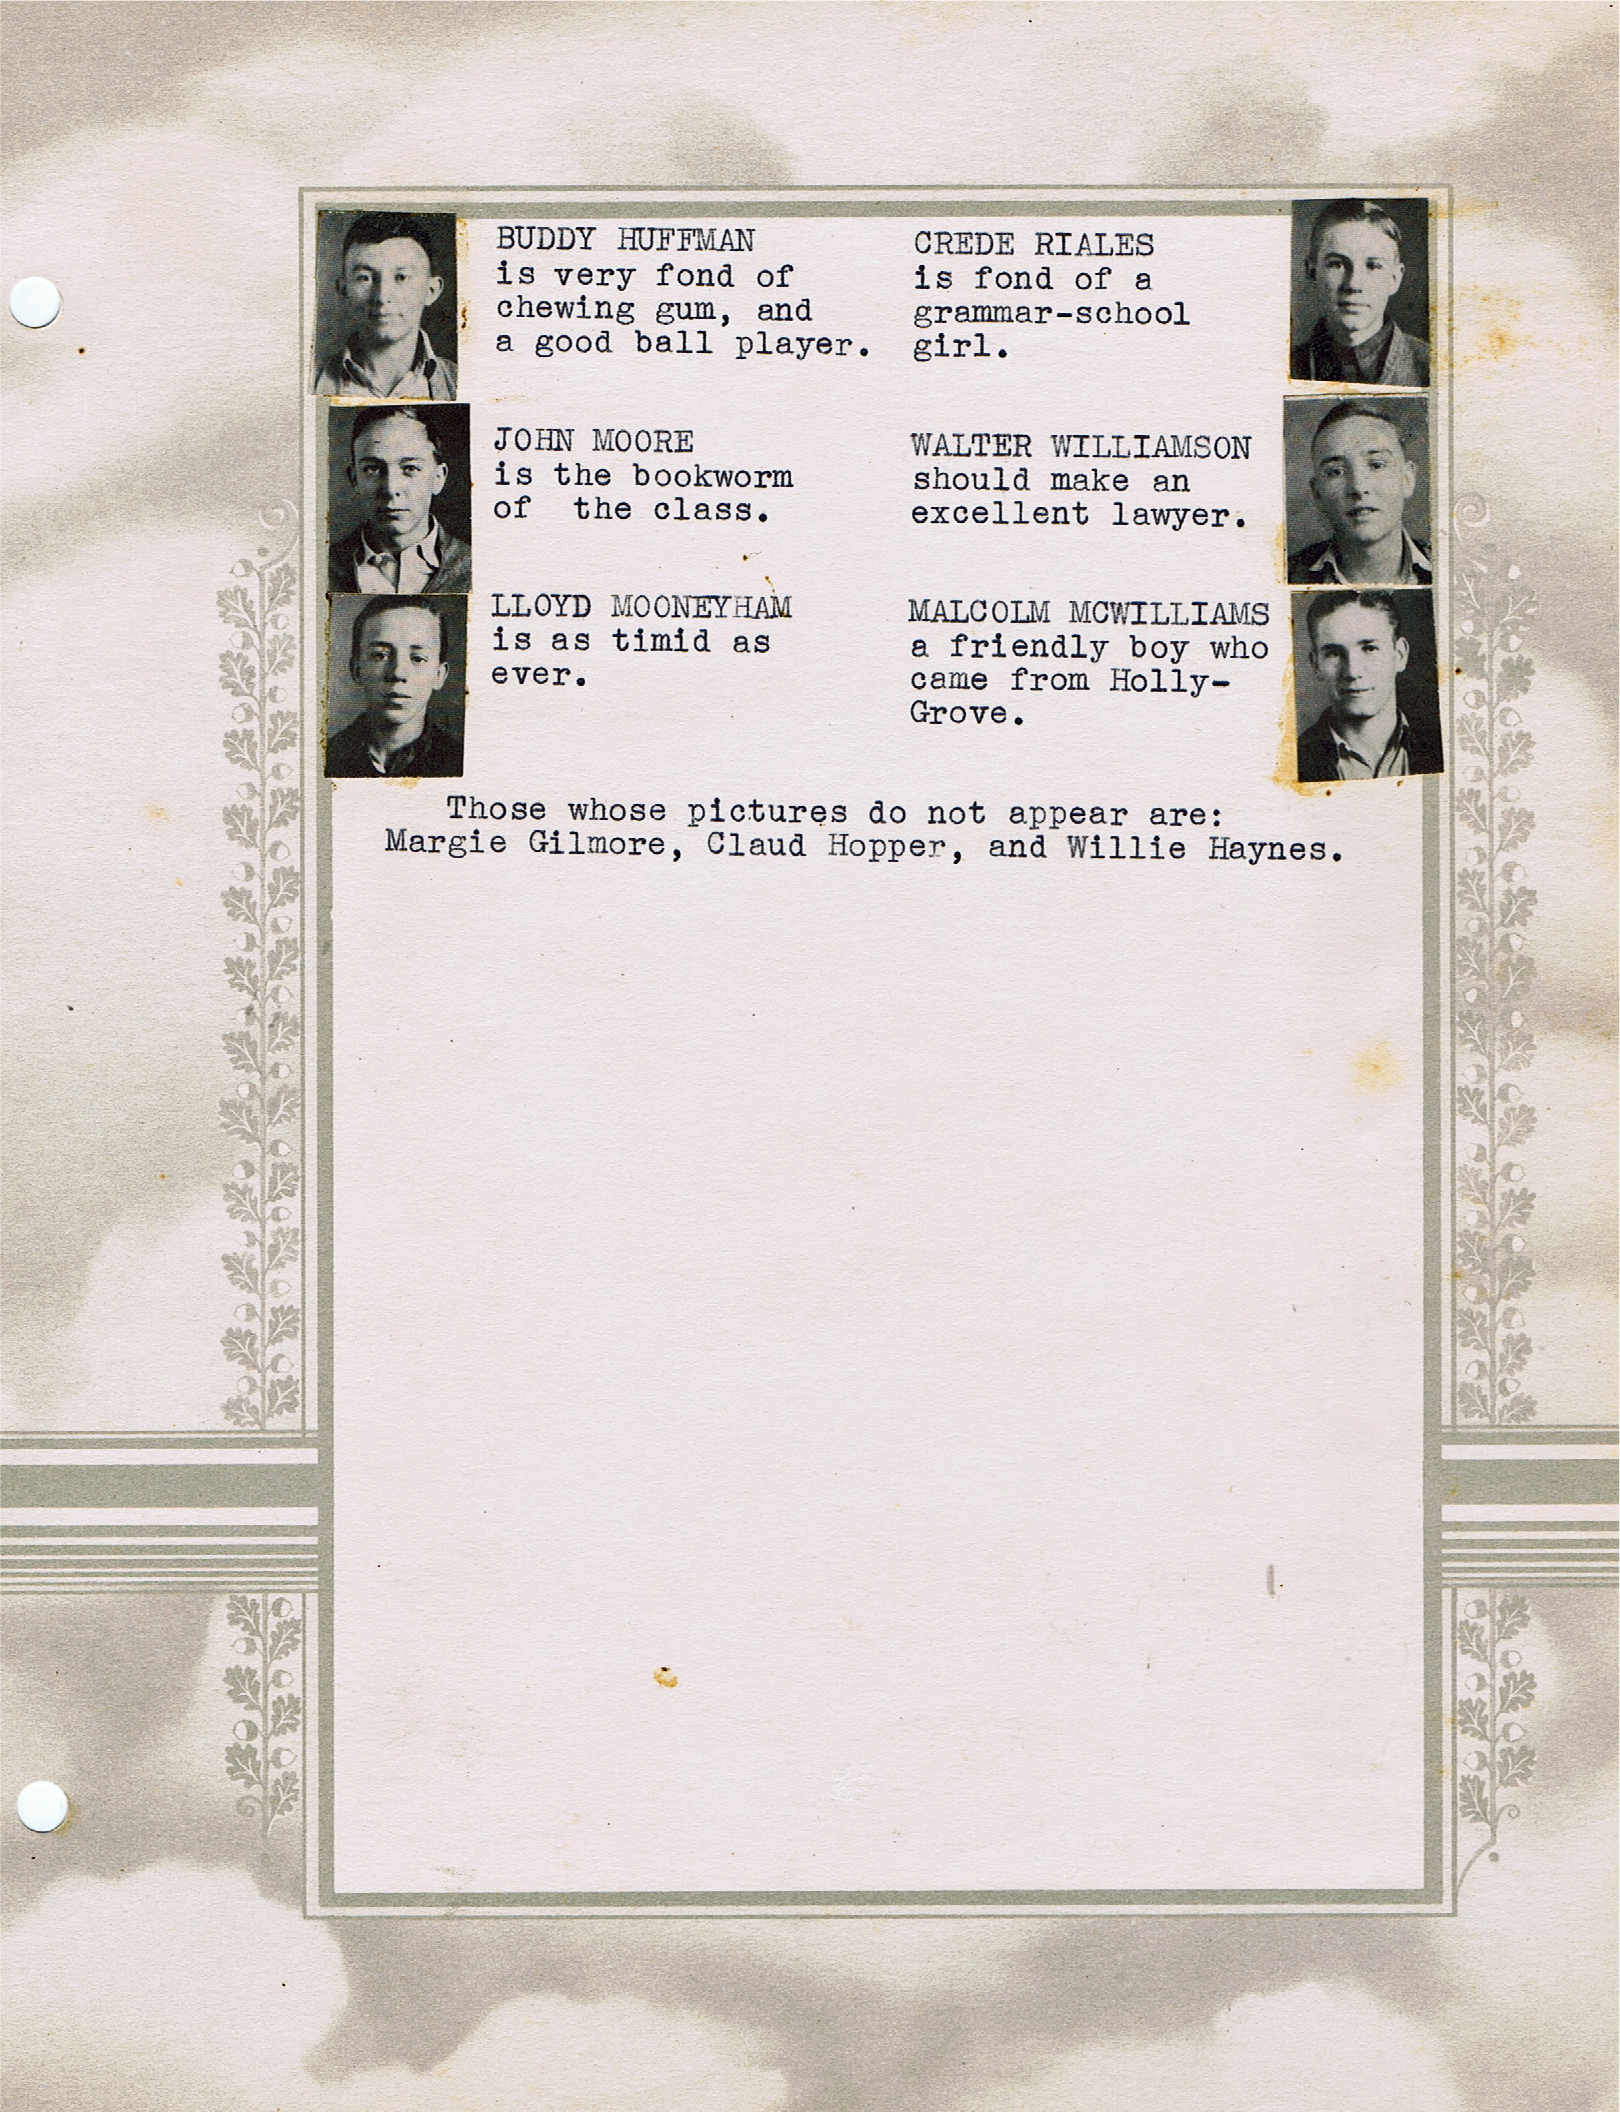 BUDDY HUFFMAN
is very fond of
chewing gum, and
a good ball player.
CREDE RIALES
is fond of a
grammar-school
girl.
JOHN MOORE
is the bookworm
of the class.
WALTER WILLIAMSON
should make an
excellent lawyer.
LLOYD MOONEYHAM
is as timid as
ever.
MALCOLM MCWILLIAMS
a friendly boy who
came from Holly-
Grove.
Those whose pictures do not appear are:
Margie Gilmore, Claud Hopper, and Willie Haynes.